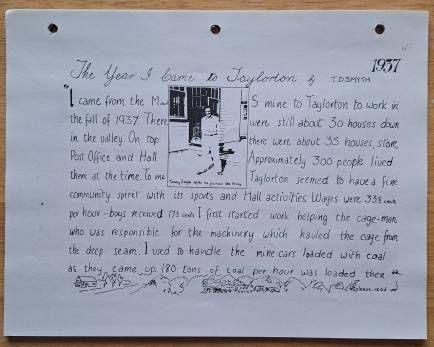 1937
The Year I Came to Taylorton by T.D.SMYTH
"I came from the M S mine to Taylorton to work in
the fall of 1937. There were still about 30 houses down
in the valley. On top there were about 35 houses, store,
Post Office and Hall Approximately 300 people lived
there at the time. To me Taylorton seemed to have a fine
community spirit with its sports and Hall activities Wages were 33½ cents
per hour-boys received 17½ cents I first started work helping the cage-man
who was responsible for the machinery which hauled the cage from
the deep seam. I used to handle the mine cars loaded with coal
as they came up. 180 tons of coal per hour was loaded then"
please read on